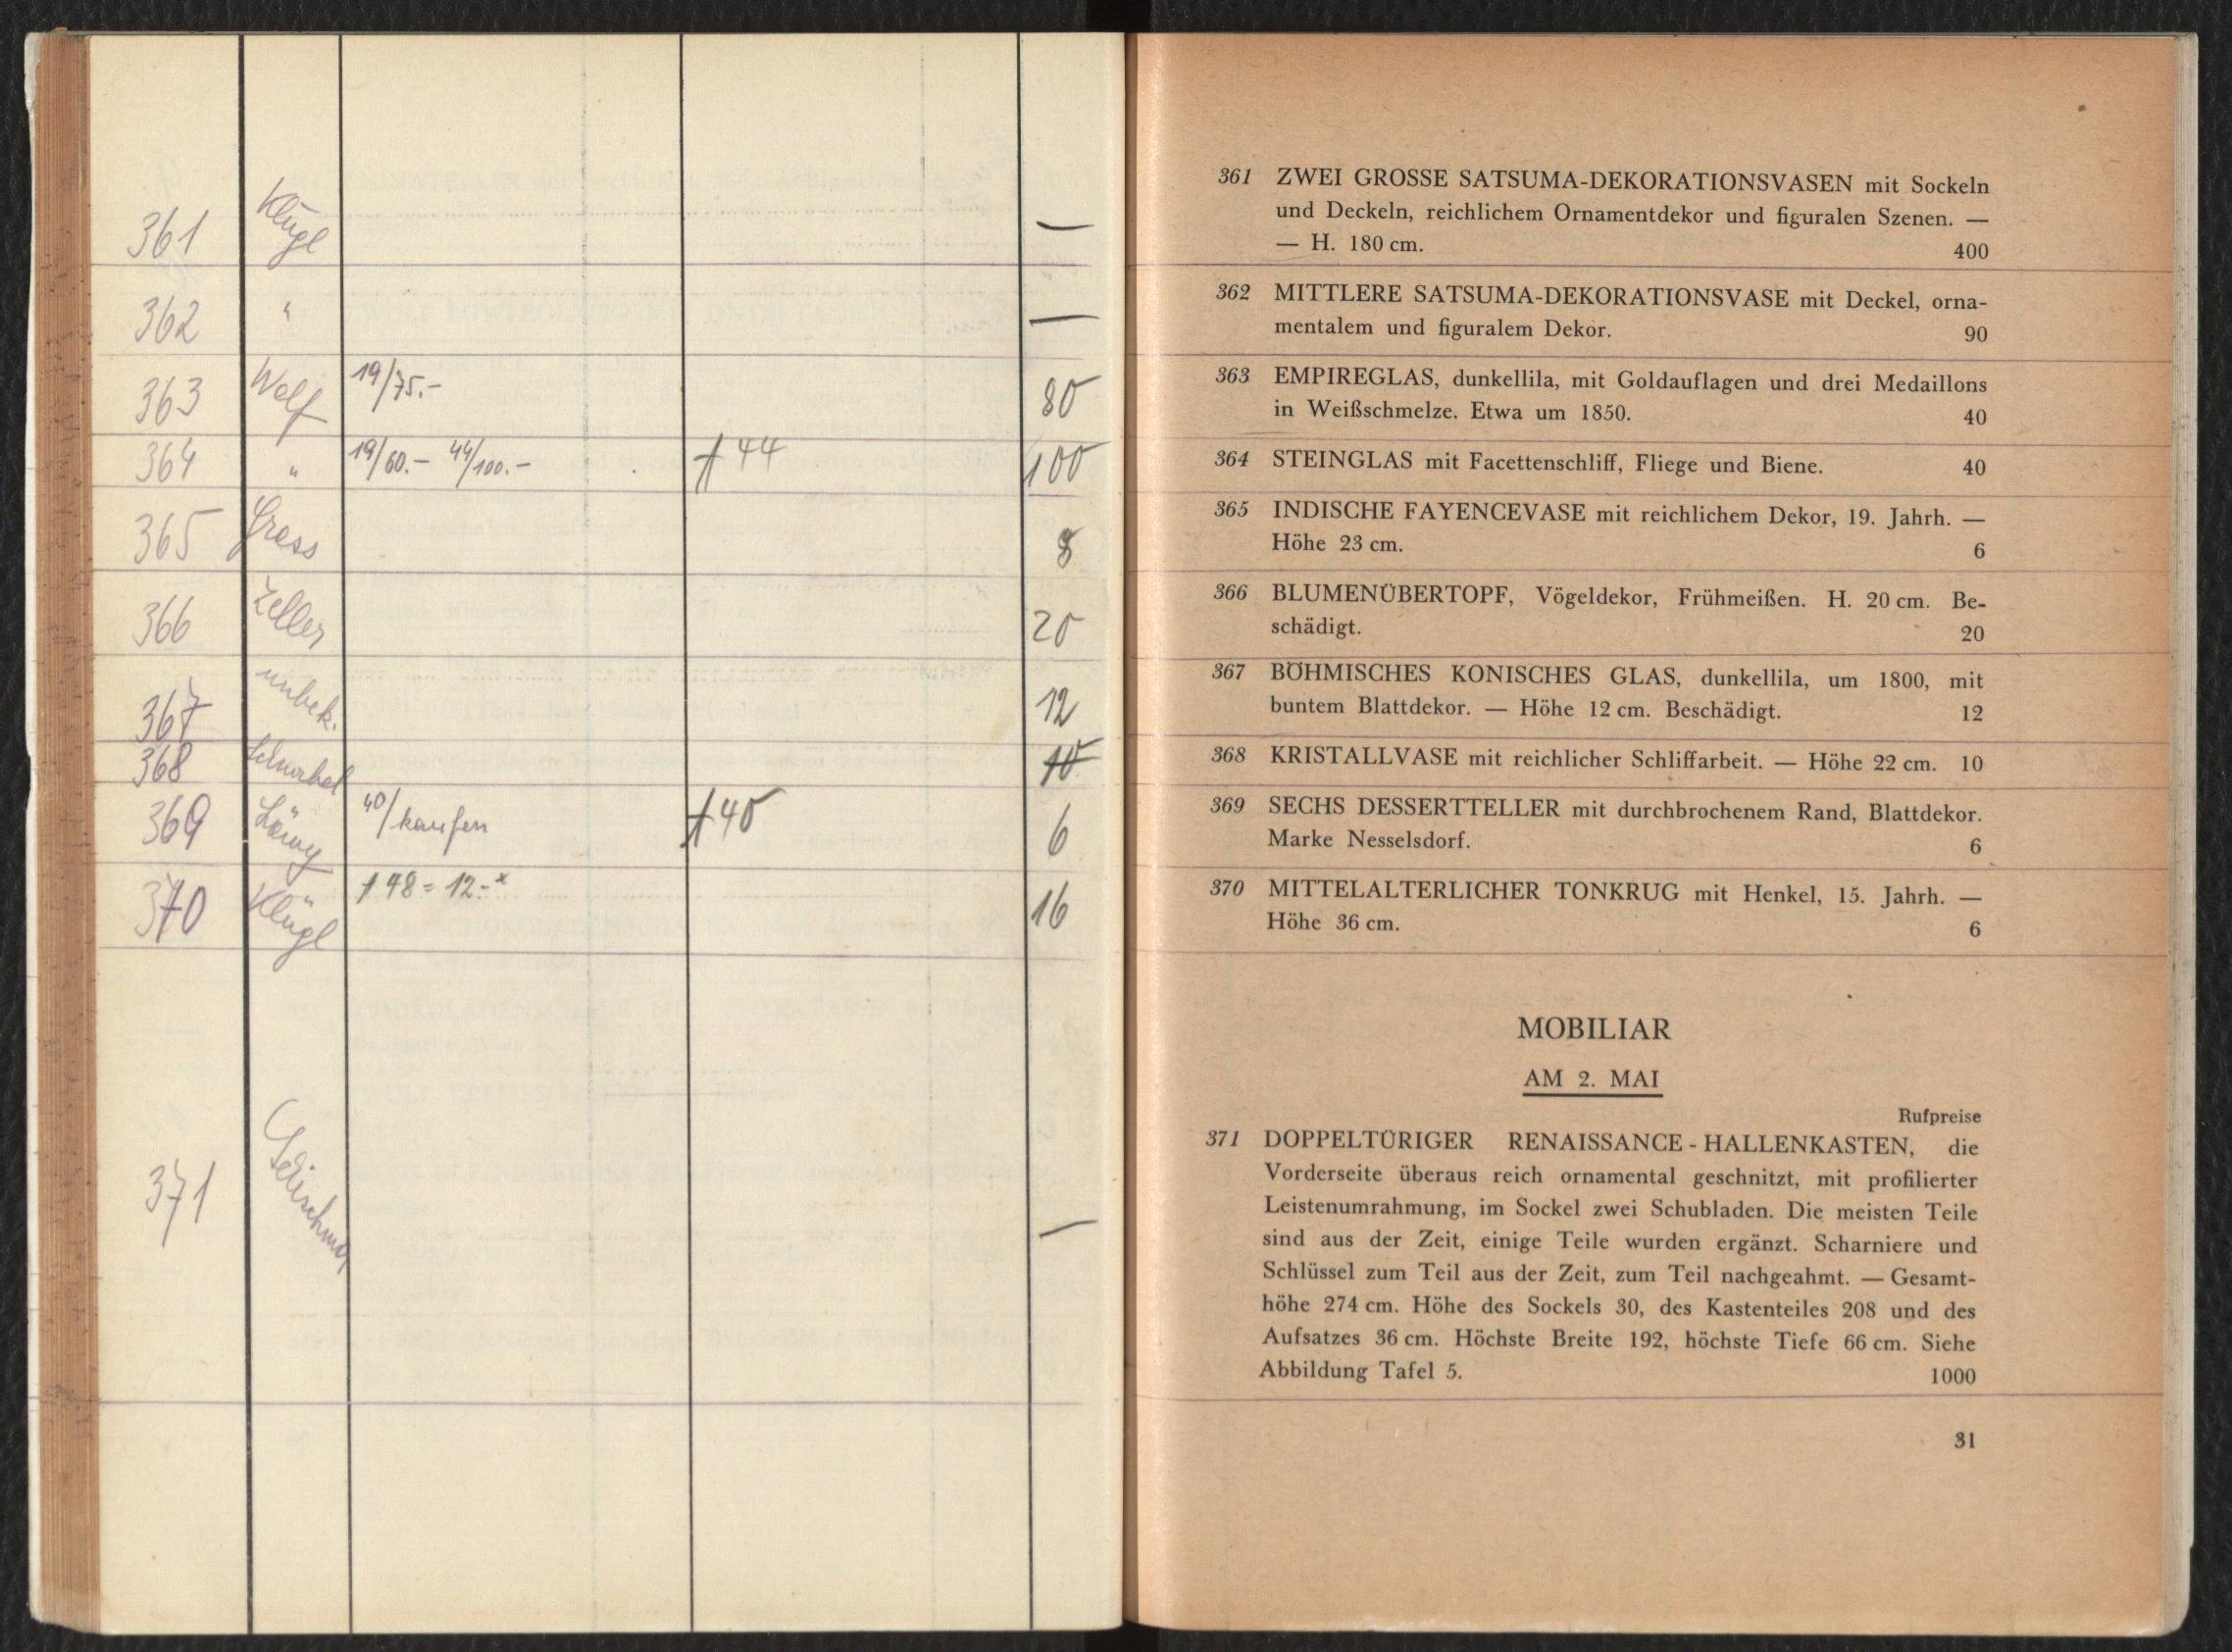 361 Klügl —
362 " —
363 Welf 19/75.- 80
364 " 19/60.- 44/100.- † 44 100
365 Gress 8
366 Zeller 20
367 unbek. 12
368 Schnabel 10
369 40/kaufen † 40 6
370 Klügl † 48 = 12.-x 16
371 —
361 ZWEI GROSSE SATSUMA-DEKORATIONSVASEN mit Sockeln
und Deckeln, reichlichem Ornamentdekor und figuralen Szenen. —
— H. 180 cm. 400
362 MITTLERE SATSUMA-DEKORATIONSVASE mit Deckel, orna-
mentalem und figuralem Dekor. 90
363 EMPIREGLAS, dunkellila, mit Goldauflagen und drei Medaillons
in Weißschmelze. Etwa um 1850. 40
364 STEINGLAS mit Facettenschliff, Fliege und Biene. 40
365 INDISCHE FAYENCEVASE mit reichlichem Dekor, 19. Jahrh. —
Höhe 23 cm. 6
366 BLUMENÜBERTOPF, Vögeldekor, Frühmeißen. H. 20 cm. Be-
schädigt. 20
367 BÖHMISCHES KONISCHES GLAS, dunkellila, um 1800, mit
buntem Blattdekor. — Höhe 12 cm. Beschädigt. 12
368 KRISTALLVASE mit reichlicher Schliffarbeit. — Höhe 22 cm. 10
369 SECHS DESSERTTELLER mit durchbrochenem Rand, Blattdekor.
Marke Nesselsdorf. 6
370 MITTELALTERLICHER TONKRUG mit Henkel, 15. Jahrh. —
Höhe 36 cm. 6
MOBILIAR
AM 2. MAI
Rufpreise
371 DOPPELTÜRIGER RENAISSANCE-HALLENKASTEN, die
Vorderseite überaus reich ornamental geschnitzt, mit profilierter
Leistenumrahmung, im Sockel zwei Schubladen. Die meisten Teile
sind aus der Zeit, einige Teile wurden ergänzt. Scharniere und
Schlüssel zum Teil aus der Zeit, zum Teil nachgeahmt. — Gesamt-
höhe 274 cm. Höhe des Sockels 30, des Kastenteiles 208 und des
Aufsatzes 36 cm. Höchste Breite 192, höchste Tiefe 66 cm. Siehe
Abbildung Tafel 5. 1000
31